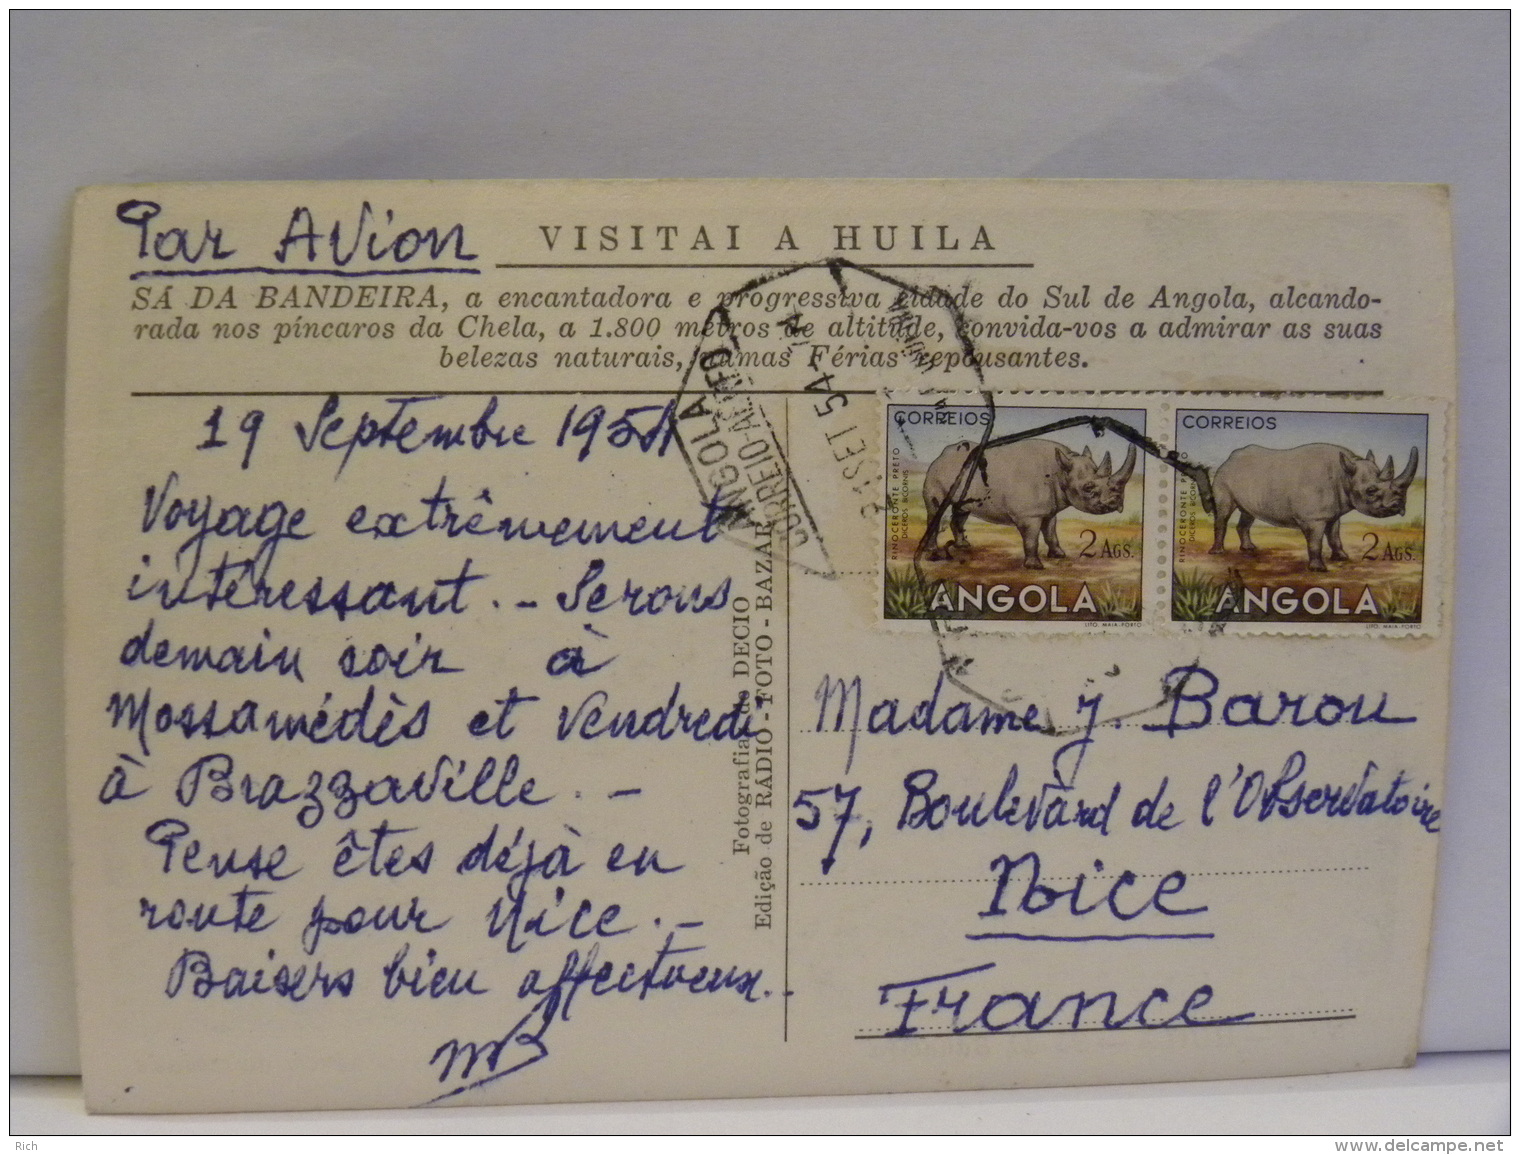 Par Avion
VISITAI A HUILA
SÁ DA BANDEIRA, a encantadora e progressiva cidade do Sul de Angola, alcando-
rada nos píncaros da Chela, a 1.800 metros de altitude, convida-vos a admirar as suas
belezas naturais, numas Férias repousantes.
19 Septembre 1954
Voyage extrêmement
intéressant. - Serons
demain soir à
Mossamédès et vendredi
à Brazzaville. -
Pense êtes déjà en
route pour Nice. -
Baisers bien affectueux. -
MB
Fotografia de DECIO
Edição de RÁDIO - FOTO - BAZAR
ANGOLA
CORREIO
SET 54
CORREIOS
RINOCERONTE PRETO
DICEROS BICORNIS
2 AGS.
ANGOLA
LITO. MAIA-PORTO
CORREIOS
RINOCERONTE PRETO
DICEROS BICORNIS
2 AGS.
ANGOLA
LITO. MAIA-PORTO
Madame J. Barou
57, Boulevard de l'Observatoire
Nice
France
Rich
www.delcampe.net